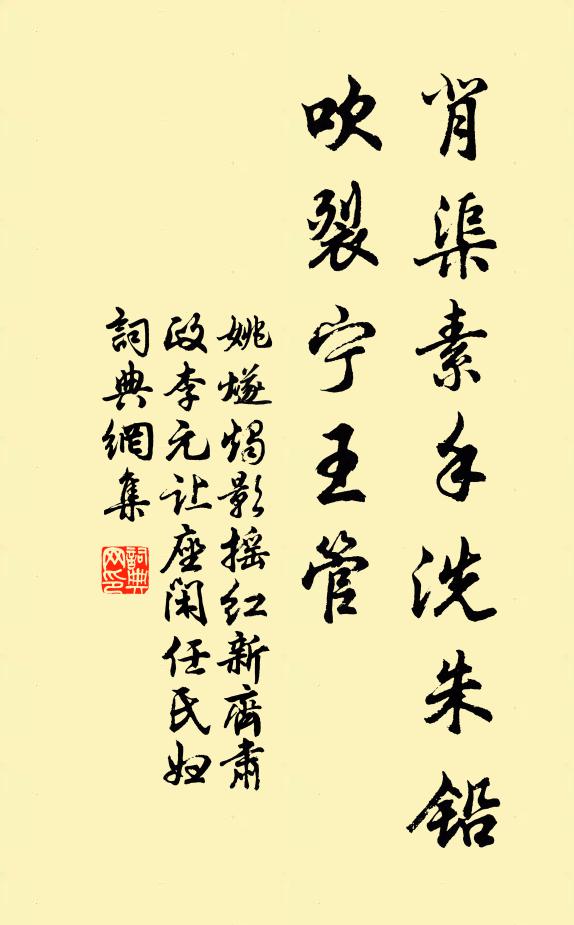 肯渠素手洗朱铅
吹裂宁王管
姚燧烛影摇红新齋肃
政李元让座闲任氏妇
詞典網集
詞典网印